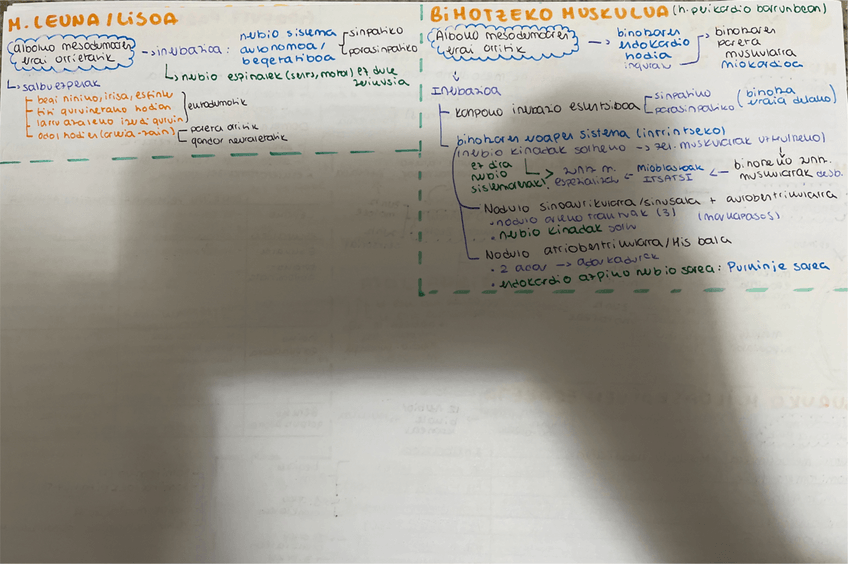 M. LEUNA / LISOA
Alboko mesodermoren
erai orritik
→ inerbazioa:
nerbio sistema
autonomoa /
begetatiboa
sinpatiko
parasinpatiko
↳ nerbio espinalek (sents, motor) ez dute
zerikusia
↳ salbuespenak
begi ninino, irisa, estinu
larru azaleko izerdi guruin
odol hodien (arteria-zain)
pareta orritik
gandor neuraletatik
BIHOTZEKO MUSKULUA (h. perikardio barrunbean)
Alboko mesodermoren
erai orritik
→ bihotzaren
endokardio
hodia
inguratu
→ bihotzaren
pareta
muskularra
miokardioa
Inerbazioa
kanpoko inerbazio estrintsekoa
sinpatiko
parasinpatiko
(bihotza
bihotzaren eroapen sistema (intrintseko)
(nerbio kinadak sortzeko → zel. muskularrak
ez dira
nerbio
sistemarenak!
> zuntz m.
espezializatu
← mioblastoak
ITSATSI
← bihotzeko zuntz.
muskularrak desb.
Nodulo sinoaurikularra / sinusala + auriobentrikularra
(markapasos)
• nerbio kinadak sortu
Nodulo atriobentrikularra / His bala
• 2 adar → adarkadurak
• endokardio azpiko nerbio sarea: Purkinje sarea